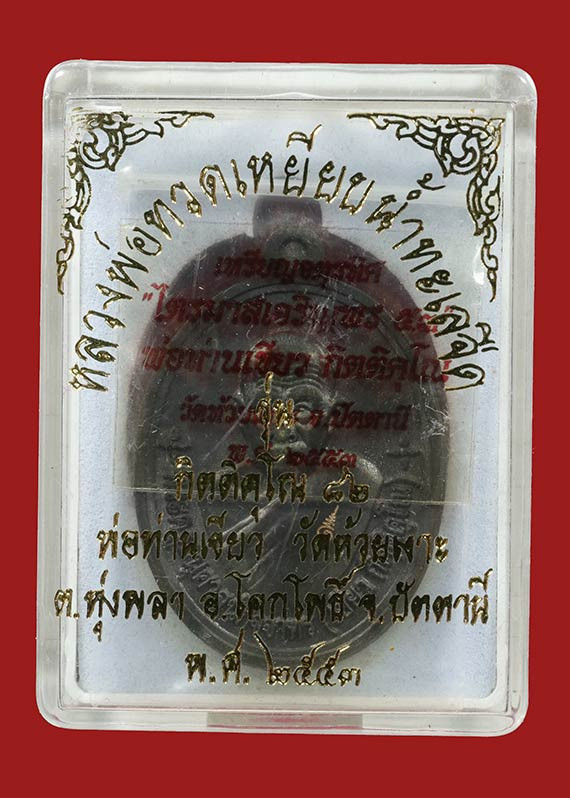 หลวงพ่อทวดเหยียบน้ำทะเลจืด
เหรียญ
"ไตรมาสเจริญพร ๕๕"
พ่อท่านเขียว กิตติคุโณ
จ.ปัตตานี
พ.ศ. ๒๕๕๓
รุ่น
กิตติคุโณ ๘๒
พ่อท่านเขียว วัดห้วยเงาะ
ต.ทุ่งพลา อ.โคกโพธิ์ จ.ปัตตานี
พ.ศ. ๒๕๕๓